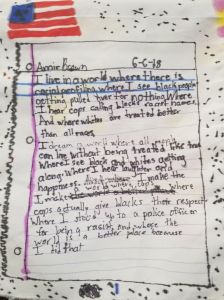 Annie Brown 6-6-18
I live in a world where there is
racial profiling where I see black people
getting pulled over for nothing. Where
I hear cops calling blacks racist names.
And where whites are treated better
than all races.
I dream a world where all people
can live without being treated like that
Where I see black and whites getting
along. Where I hear laughter and
happiness. I make the
world where cops where
I make
cops actually give blacks there respect
Where I stood up to a police officer
for being a racist and where the
world is a better place because
I did that